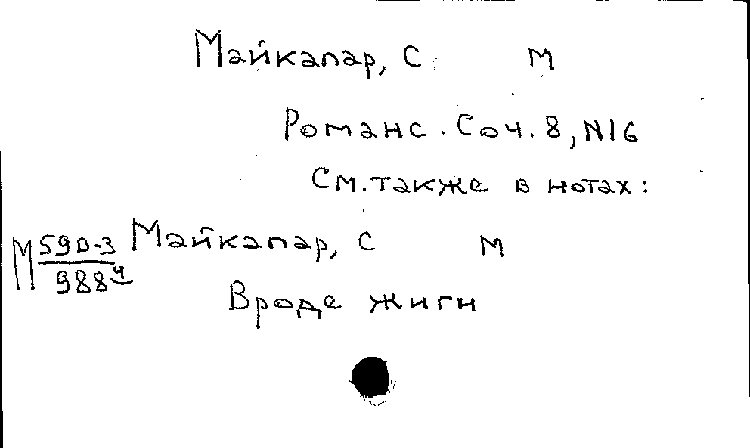 Майкапар, С М
Романс. Соч. 8, N16
См. также в нотах:
М 590-3/988ч Майкапар, С М
Вроде жиги